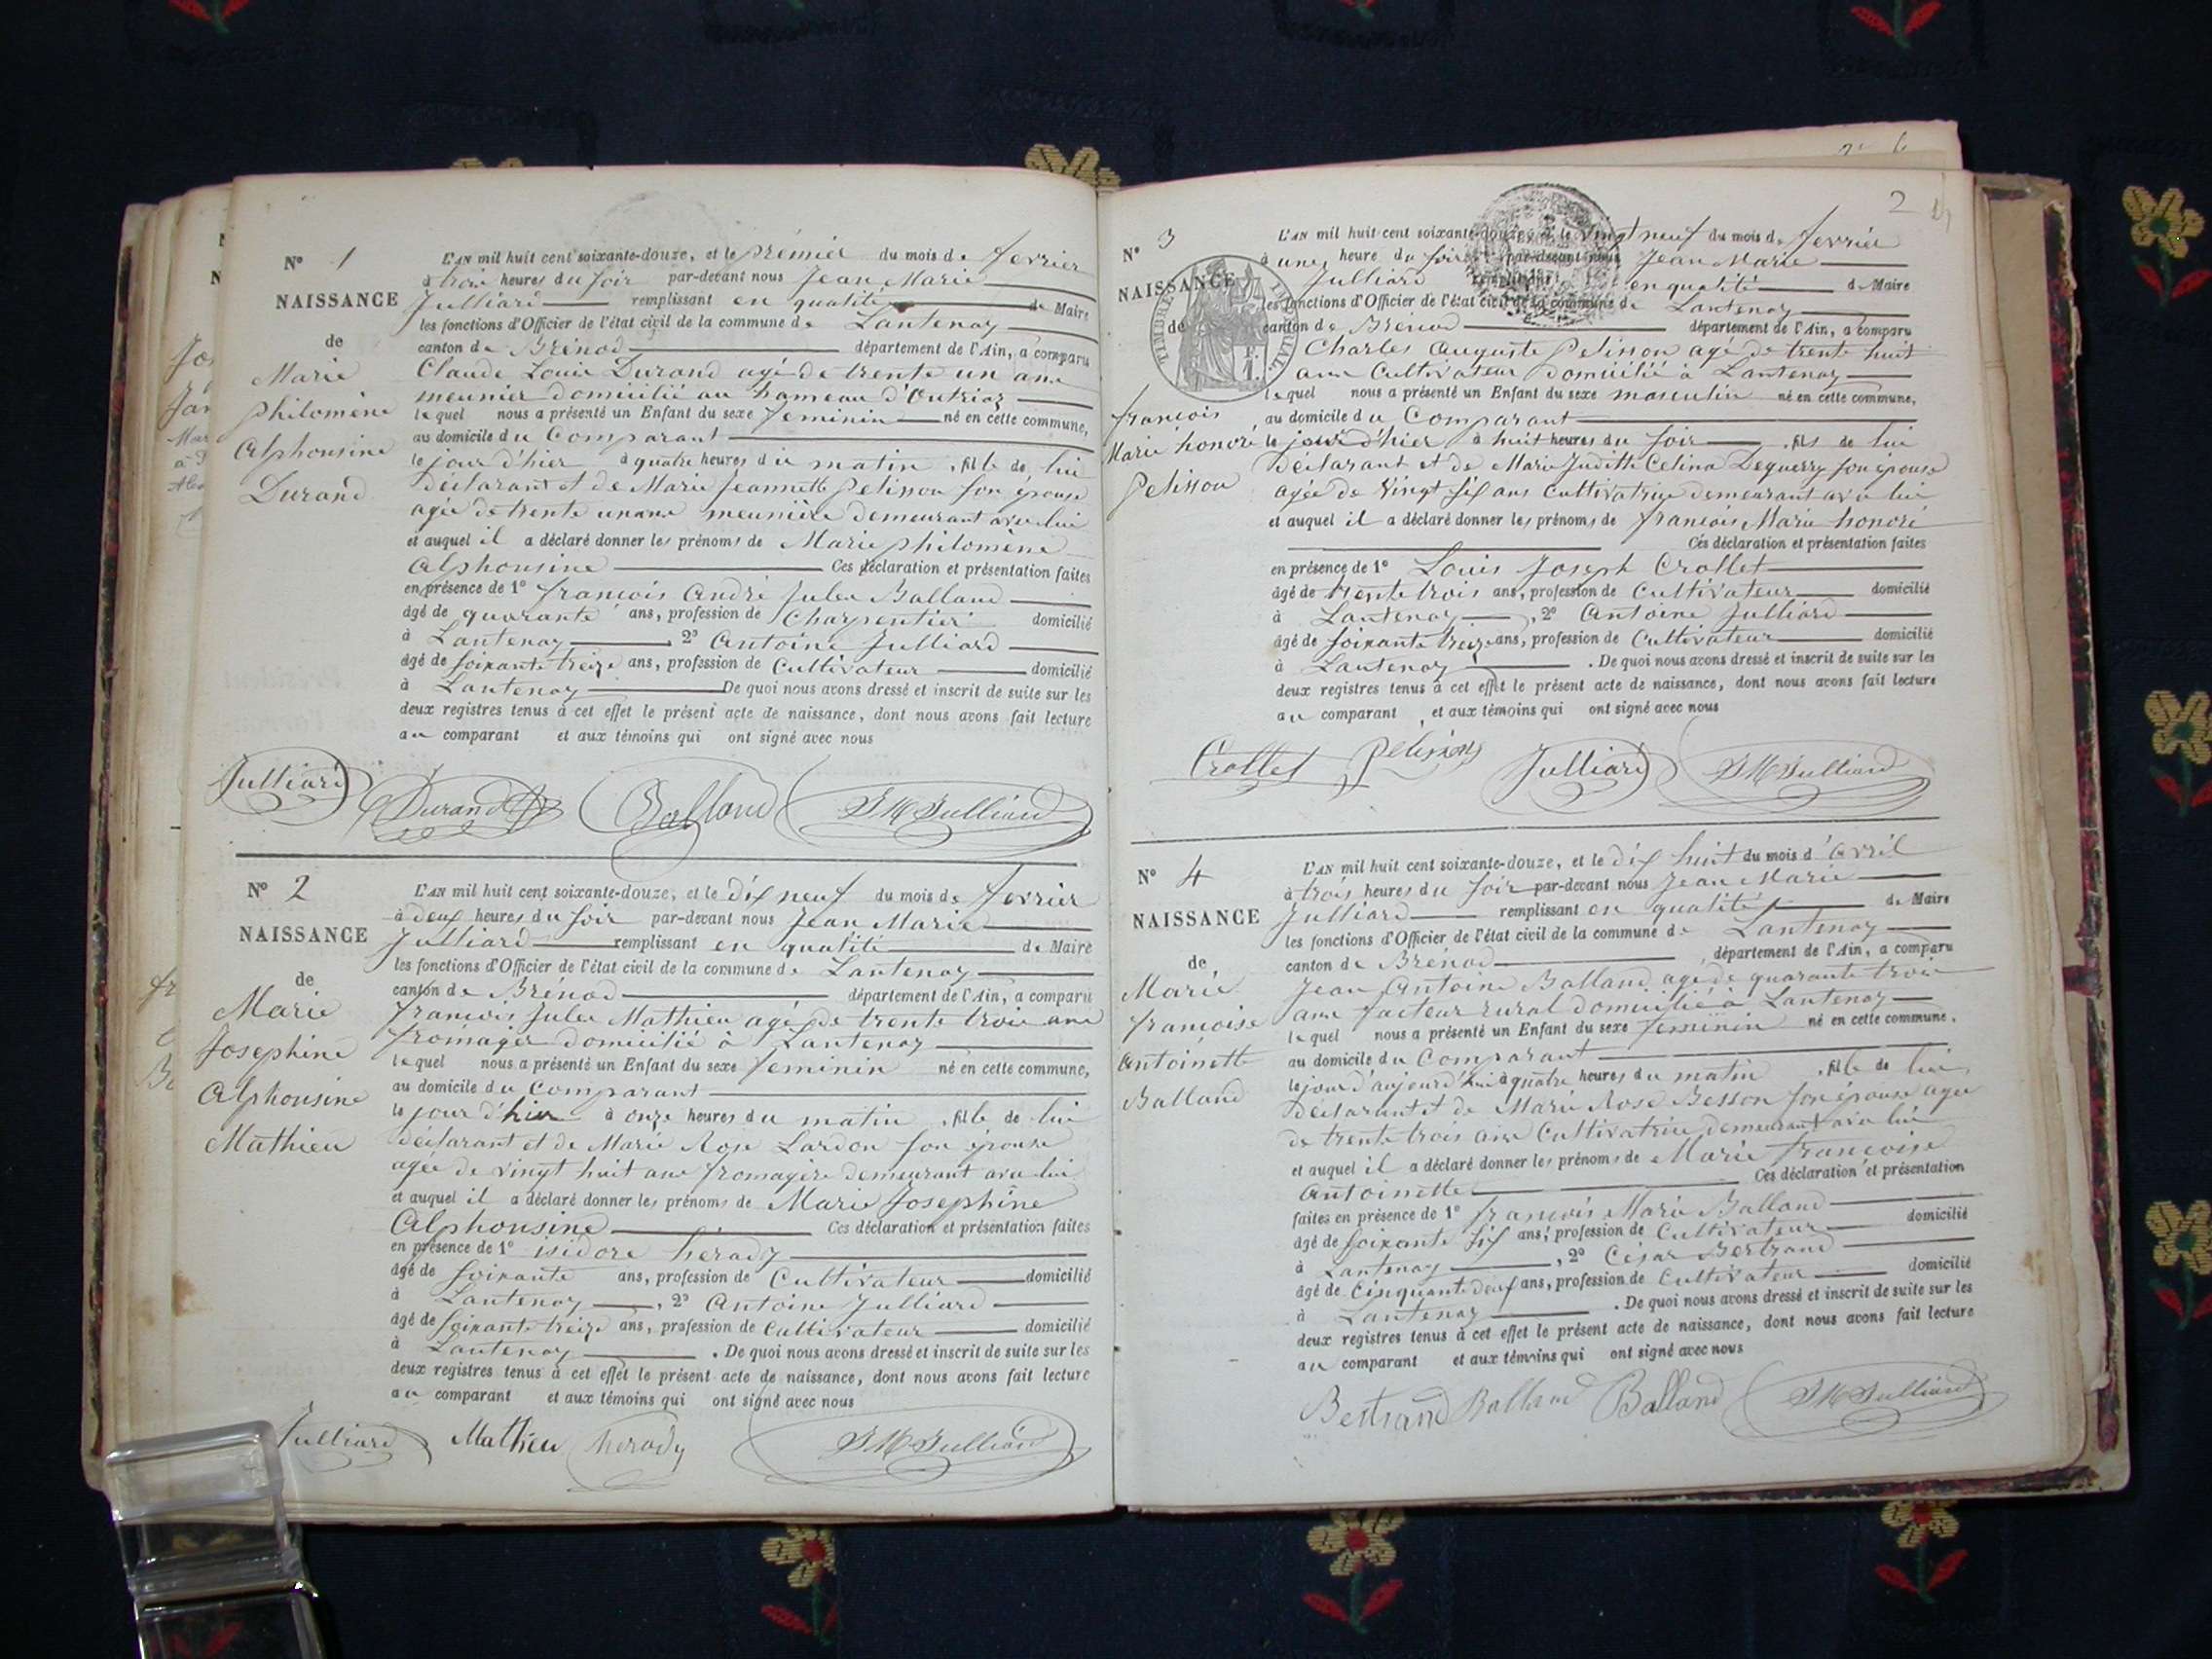 N° 1
NAISSANCE
de
Marie
philomène
Alphonsine
Durand
L'AN mil huit cent soixante-douze, et le prémier du mois de fevrier
à trois heures du soir par-devant nous Jean Marie
Julliard remplissant en qualité de Maire
les fonctions d'Officier de l'état civil de la commune de Lantenay
canton de Brénod département de l'Ain, a comparu
Claude Louis Durand agé de trente un ans
meunier domicilié au hameau d'Outriaz
lequel nous a présenté un Enfant du sexe feminin né en cette commune,
au domicile du Comparant
le jour d'hier à quatre heures du matin, fille de lui
déclarant et de Marie Jeannette pelisson son épouse
agée de trente un ans meunière demeurant avec lui
et auquel il a déclaré donner les prénoms de Marie philomène
Alphonsine Ces déclaration et présentation faites
en présence de 1° françois André Jules Balland
âgé de quarante ans, profession de Charpentier domicilié
à Lantenay 2° Antoine Julliard
âgé de soixante treize ans, profession de Cultivateur domicilié
à Lantenay De quoi nous avons dressé et inscrit de suite sur les
deux registres tenus à cet effet le présent acte de naissance, dont nous avons fait lecture
au comparant et aux témoins qui ont signé avec nous
Julliard Durand Balland JM Julliard
N° 2
NAISSANCE
de
Marie
Josephine
Alphonsine
Mathieu
L'AN mil huit cent soixante-douze, et le dix neuf du mois de fevrier
à deux heures du soir par-devant nous Jean Marie
Julliard remplissant en qualité de Maire
les fonctions d'Officier de l'état civil de la commune de Lantenay
canton de Brénod département de l'Ain, a comparu
françois Jules Mathieu agé de trente trois ans
fromager domicilié à Lantenay
lequel nous a présenté un Enfant du sexe feminin né en cette commune,
au domicile du Comparant
le jour d'hier à onze heures du matin, fille de lui
déclarant et de Marie Rose Lardon son épouse
agée de vingt huit ans fromagère demeurant avec lui
et auquel il a déclaré donner les prénoms de Marie Josephine
Alphonsine Ces déclaration et présentation faites
en présence de 1° isidore herady
âgé de soixante ans, profession de Cultivateur domicilié
à Lantenay, 2° Antoine Julliard
âgé de soixante treize ans, profession de Cultivateur domicilié
à Lantenay. De quoi nous avons dressé et inscrit de suite sur les
deux registres tenus à cet effet le présent acte de naissance, dont nous avons fait lecture
au comparant et aux témoins qui ont signé avec nous
Julliard Mathieu herady JM Julliard
2
N° 3
NAISSANCE
de
TIMBRE IMPÉRIAL
françois
Marie honoré
Pelisson
L'AN mil huit cent soixante-douze, et le vingt neuf du mois de fevrier
à une heure du soir par-devant nous Jean Marie
Julliard remplissant en qualité de Maire
les fonctions d'Officier de l'état civil de la commune de Lantenay
canton de Brénod département de l'Ain, a comparu
Charles Auguste Pelisson agé de trente huit
ans Cultivateur domicilié à Lantenay
lequel nous a présenté un Enfant du sexe masculin né en cette commune,
au domicile du Comparant
le jour d'hier à huit heures du soir, fils de lui
déclarant et de Marie Juditte Celina Deguerry son épouse
agée de vingt six ans Cultivatrice demeurant avec lui
et auquel il a déclaré donner les prénoms de françois Marie honoré
Ces déclaration et présentation faites
en présence de 1° Louis Joseph Crollet
âgé de trente trois ans, profession de Cultivateur domicilié
à Lantenay, 2° Antoine Julliard
âgé de soixante treize ans, profession de Cultivateur domicilié
à Lantenay. De quoi nous avons dressé et inscrit de suite sur les
deux registres tenus à cet effet le présent acte de naissance, dont nous avons fait lecture
au comparant, et aux témoins qui ont signé avec nous
Crollet Pelisson Julliard JM Julliard
N° 4
NAISSANCE
de
Marie
françoise
Antoinette
Balland
L'AN mil huit cent soixante-douze, et le dix huit du mois d'avril
à trois heures du soir par-devant nous Jean Marie
Julliard remplissant en qualité de Maire
les fonctions d'Officier de l'état civil de la commune de Lantenay
canton de Brénod, département de l'Ain, a comparu
Jean Antoine Balland agé de quarante trois
ans facteur rural domicilié à Lantenay
lequel nous a présenté un Enfant du sexe feminin né en cette commune,
au domicile du Comparant
le jour d'aujourd'hui à quatre heures du matin, fille de lui
déclarant et de Marie Rose Besson son épouse agée
de trente trois ans Cultivatrice demeurant avec lui
et auquel il a déclaré donner les prénoms de Marie françoise
Antoinette Ces déclaration et présentation
faites en présence de 1° françois Marie Balland
âgé de soixante six ans, profession de Cultivateur domicilié
à Lantenay, 2° César Bertrand
âgé de Cinquante deux ans, profession de Cultivateur domicilié
à Lantenay. De quoi nous avons dressé et inscrit de suite sur les
deux registres tenus à cet effet le présent acte de naissance, dont nous avons fait lecture
au comparant et aux témoins qui ont signé avec nous
Bertrand Balland Balland JM Julliard